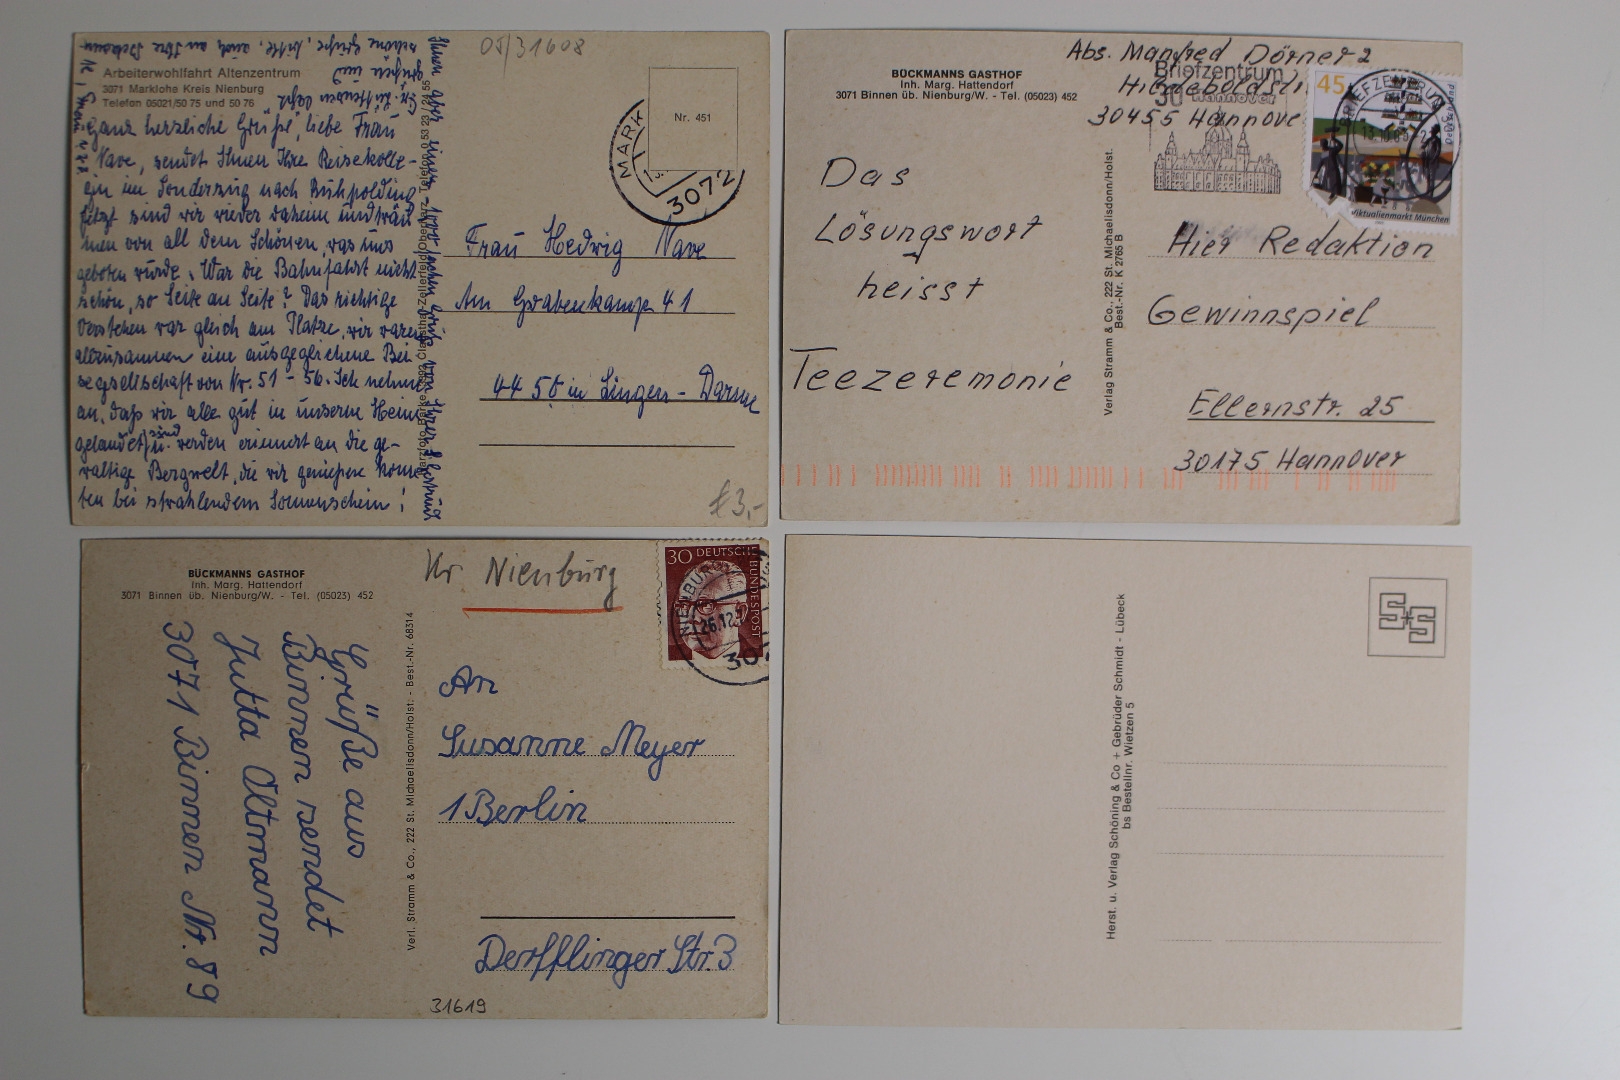 05/31608
Arbeiterwohlfahrt Altenzentrum
3071 Marklohe Kreis Nienburg
Telefon 05021/50 75 und 50 76
Ganz herzliche Grüße, liebe Frau
Nave, sendet Ihnen Ihre Reisekolle-
gin im Sonderzug nach Ruhpolding
Jetzt sind wir wieder daheim und träu
men von all dem Schönen, was uns
geboten wurde. War die Bahnfahrt nicht
schön, so Seite an Seite? Das richtige
Verstehen war gleich am Platze, wir waren
allzusammen eine ausgeglichene Rei-
segsellschaft von Nr. 51 - 56. Ich nehme
an, daß wir alle gut in unserm Heim
gelandet sind u. werden erinnert an die ge-
waltige Bergwelt, die wir genießen konn-
ten bei strahlendem Sonnenschein!
Nr. 451
MARK
3072
Frau Hedwig Nave
Am Grabenkamp 41
44 50 in Lingen - Darme
£3,-
BÜCKMANNS GASTHOF
Inh. Marg. Hattendorf
3071 Binnen üb. Nienburg/W. - Tel. (05023) 452
Abs. Manfred Dörner
30455 Hannove
Briefzentrum
30
Hannover
45
BRIEFZENTRUM
Deutschland
Viktualienmarkt München
Das
Lösungswort
heisst
Teezeremonie
Verlag Stramm & Co., 222 St. Michaelisdonn/Holst.
Best.-Nr. K 2765 B
Hier Redaktion
Gewinnspiel
Ellernstr. 25
30175 Hannover
BÜCKMANNS GASTHOF
Inh. Marg. Hattendorf
3071 Binnen üb. Nienburg/W. - Tel. (05023) 452
Kr Nienburg
30 DEUTSCHE
BUNDESPOST
NIENBURG
26.12.
Grüße aus
Binnen sendet
Jutta Altmann
3071 Binnen Nr. 89
Verl. Stramm & Co., 222 St. Michaelisdonn/Holst. - Best.-Nr. 6831 4
An
Susanne Meyer
1 Berlin
Derfflinger Str. 3
31619
S+S
Herst. u. Verlag Schöning & Co + Gebrüder Schmidt - Lübeck
bs Bestellnr. Wietzen 5